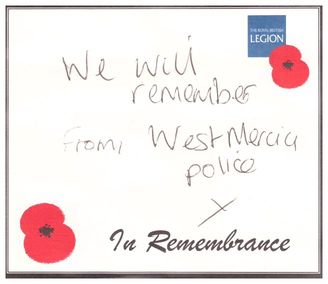 THE ROYAL BRITISH
LEGION
We will
remember
From, West Mercia
police
X
In Remembrance